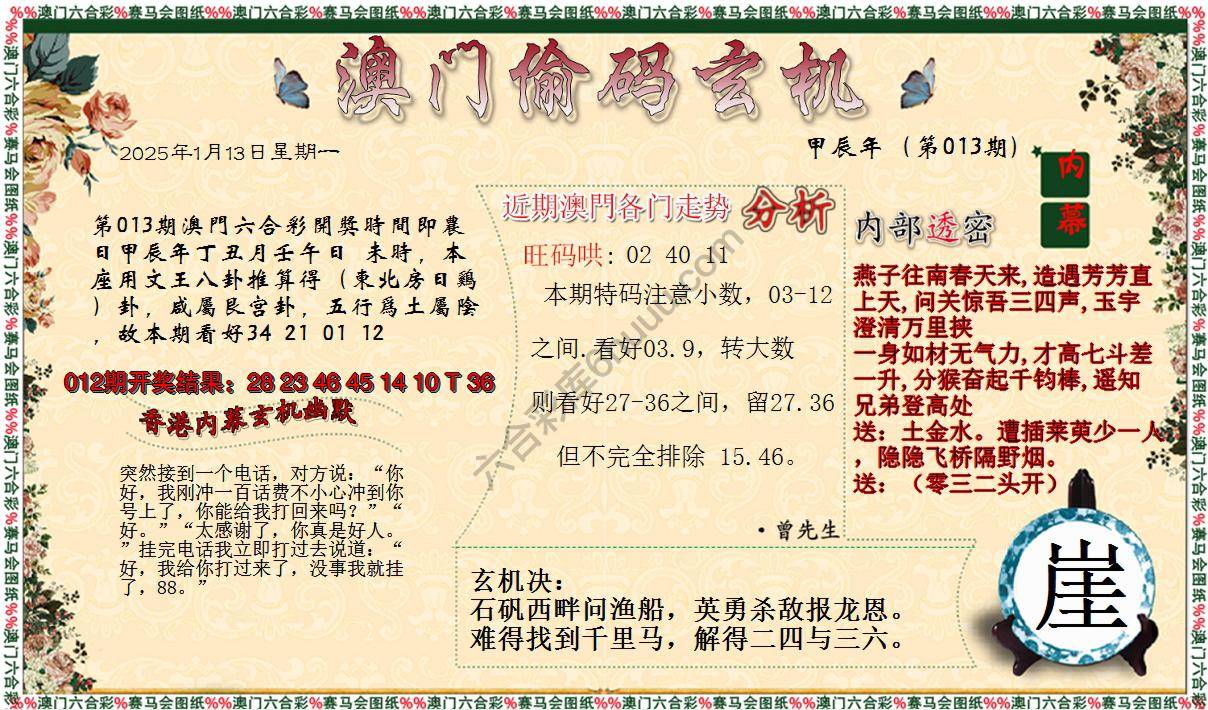 %%澳门六合彩%赛马会图纸%%澳门六合彩%赛马会图纸%%澳门六合彩%赛马会图纸%%澳门六合彩%赛马会图纸%%澳门六合彩%赛马会图纸%%澳门六合彩%赛马会图纸%%
澳门偷码玄机
2025年1月13日星期一
甲辰年（第013期）
内
幕
第013期澳門六合彩開獎時間即農
日甲辰年丁丑月壬午日 未時，本
座用文王八卦推算得（東北房日鷄
）卦，咸屬艮宫卦，五行爲土屬陰
，故本期看好34 21 01 12
012期开奖结果：28 23 46 45 14 10 T 36
香港内幕玄机幽默
突然接到一个电话，对方说：“你
好，我刚冲一百话费不小心冲到你
号上了，你能给我打回来吗？”“
好。”“太感谢了，你真是好人。
”挂完电话我立即打过去说道：“
好，我给你打过来了，没事我就挂
了，88。”
近期澳門各门走势 分析
旺码哄: 02 40 11
本期特码注意小数，03-12
之间.看好03.9，转大数
则看好27-36之间，留27.36
但不完全排除 15.46。
·曾先生
内部透密
燕子往南春天来,造遇芳芳直
上天,问关惊吾三四声,玉宇
澄清万里挟
一身如材无气力,才高七斗差
一升,分猴奋起千钧棒,遥知
兄弟登高处
送：土金水。遭插莱萸少一人
，隐隐飞桥隔野烟。
送：（零三二头开）
玄机决：
石矾西畔问渔船，英勇杀敌报龙恩。
难得找到千里马，解得二四与三六。
崖
六合彩库6huuu.com
%%澳门六合彩%赛马会图纸%%澳门六合彩%赛马会图纸%%澳门六合彩%赛马会图纸%%澳门六合彩%赛马会图纸%%澳门六合彩%赛马会图纸%%澳门六合彩%赛马会图纸%%